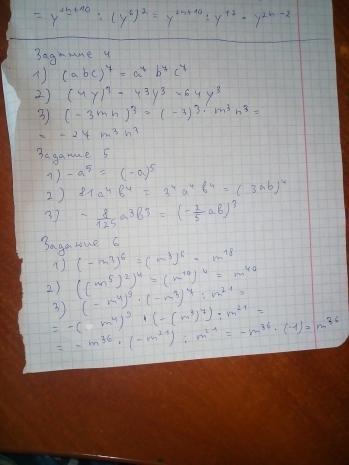 = y²ⁿ⁺¹⁰ : (y⁶)² = y²ⁿ⁺¹⁰ : y¹² = y²ⁿ⁻²
Задание 4
1) (abc)⁷ = a⁷ b⁷ c⁷
2) (4y)³ = 43y3 = 64y³
3) (-3mn)³ = (-3)³ · m³ n³ =
= -27 m³ n³
Задание 5
1) -a⁵ = (-a)⁵
2) 81a⁴b⁴ = 3⁴a⁴b⁴ = (3ab)⁴
3) - 8/125 a³b³ = (-2/5 ab)³
Задание 6
1) (-m3)⁶ = (m³)⁶ = m¹⁸
2) ((m⁵)²)⁴ = (m¹⁰)⁴ = m⁴⁰
3) (-m⁴)⁹ · (-m³)⁷ : m²¹ =
= -(m⁴)⁹ · (-(m³)⁷) : m²¹ =
= -m³⁶ · (-m²¹) : m²¹ = -m³⁶ · (-1) = m³⁶